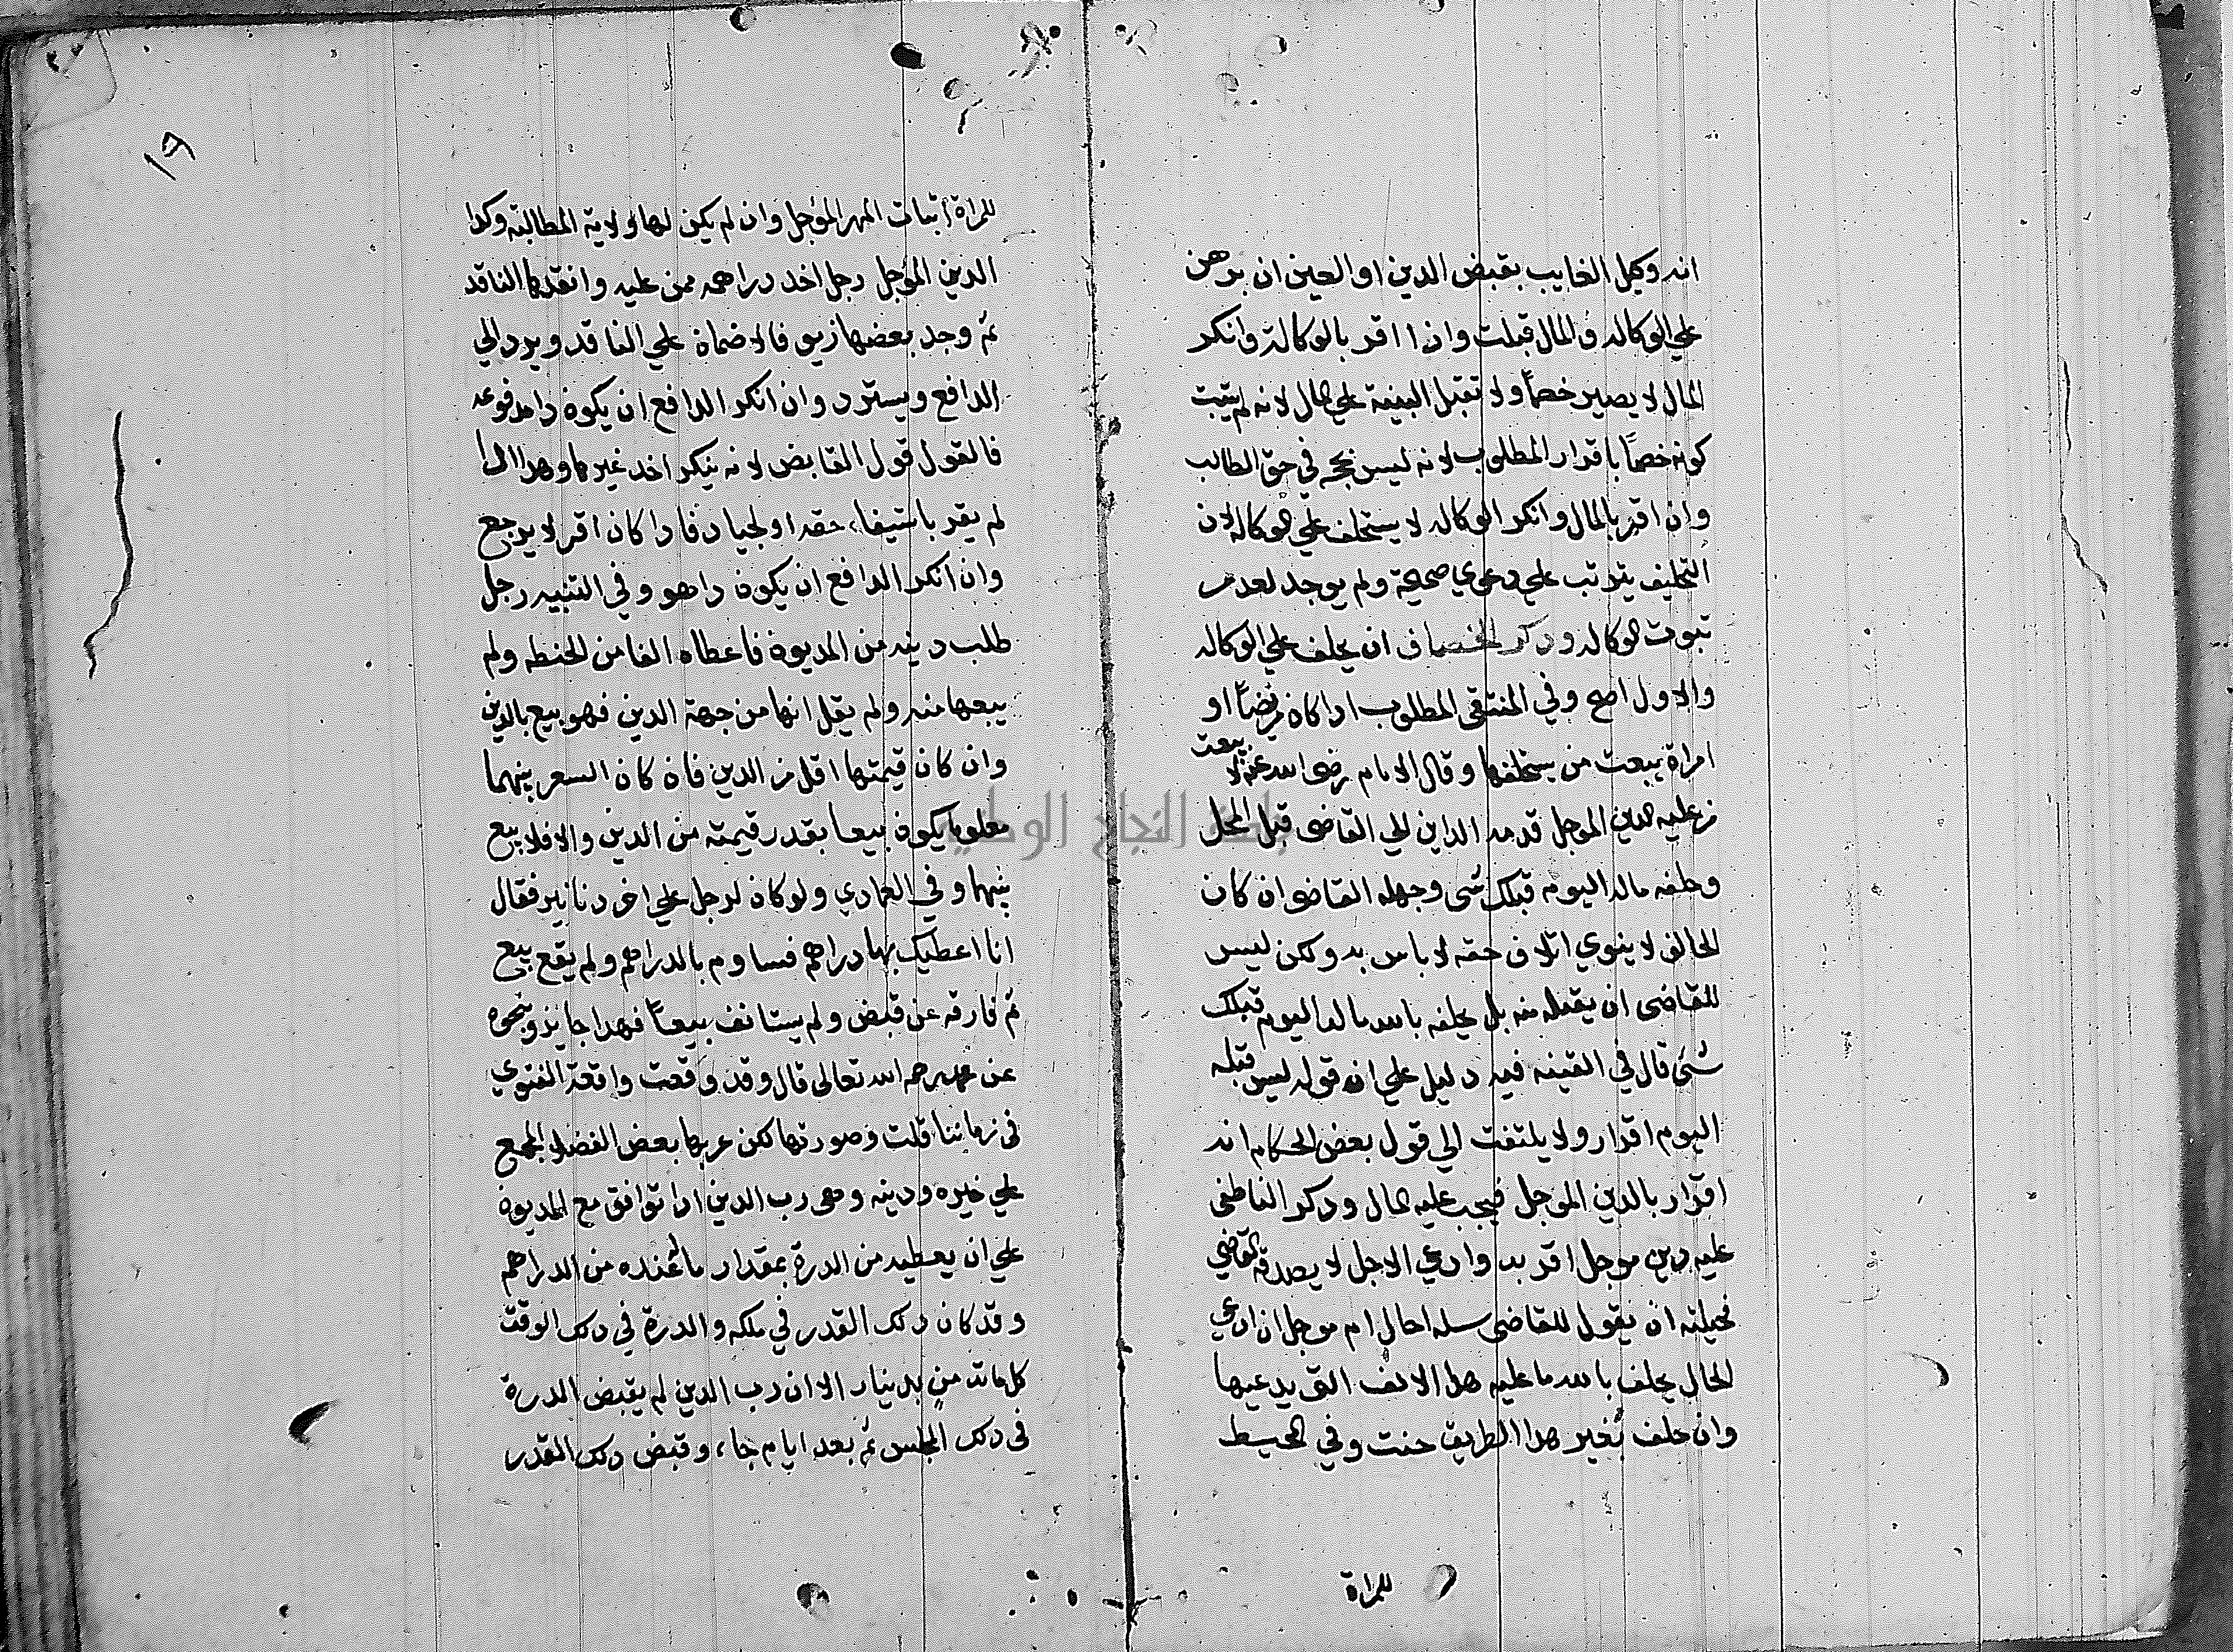 انه وكيل الغايب بقبض الدين او العين ان برهن
علي الوكاله والمال قبلت وان اقر بالوكالة وانكر
المال لا يصير خصماً ولا تقبل البينة علي المال لانه لم يثبت
كونه خصماً باقرار المطلوب لانه ليس بحجه في حق الطالب
وان اقر بالمال وانكر الوكاله لا يستحلف علي الوكاله لان
التحليف يترتب علي دعوي صحيحة ولم يوجد لعدم
ثبوت الوكاله ودكر الخصاف ان يحلف علي الوكاله
والاول اصح وفي المنتقى المطلوب ادا كان مريضاً او
امراة يبعث من يستحلفها وقال الامام رضي الله عنه لا يبعث
من عليه الدين الموجل قدمه الداين الي القاضي قبل المحل
وحلفه ماله اليوم قبلك شي وجهله القاضي ان كان
الحالف لا ينوي اتلاف حقه لا باس به ولكن ليس
للقاضي ان يقبله منه بل يحلفه بالله ما له اليوم قبلك
شئ قال في القينه فيه دليل علي ان قوله ليس قبله
اليوم اقرار ولا يلتفت الي قول بعض الحكام انه
اقرار بالدين الموجل فيجب عليه المال ودكر الناطفي
عليه دين موجل اقر به وادعي الاجل لا يصدقه القاضي
فحيلته ان يقول للقاضي سله احال ام موجل ان ادعي
الحال يحلف بالله ما عليه هده الالف التي يدعيها
وان حلف بغير هدا الطريق حنث وفي المحيط
للمراة
١٩
للمراة اثبات المهر المؤجل وان لم يكن لها ولاية المطالبة وكدا
الدين المؤجل رجل اخد دراهمه ممن عليه وانقدها الناقد
ثم وجد بعضها زيوفا لا ضمان علي الناقد ويرد الي
الدافع ويسترد وان انكر الدافع ان يكون دا مدفوعه
فالقول قول القابض لانه ينكر اخد غيرها وهدا ادا
لم يقر باستيفاء حقه او الجياد فادا كان اقر لا يرجع
وان انكر الدافع ان يكون دا هو وفي التنبيه رجل
طلب دينه من المديون فاعطاه الفا من الحنطه ولم
يبعها منه ولم يقل انها من جهة الدين فهو بيع بالدين
وان كان قيمتها اقل من الدين فان كان السعر بينهما
معلوما يكون بيعا بقدر قيمته من الدين والا فلا بيع
بينهما وفي العمادي ولو كان لرجل علي اخر دنانير فقال
انا اعطيك بها دراهم فساوم بالدراهم ولم يقع بيع
ثم فارقه عن قبض ولم يستانف بيعاً فهدا جايز ونحوه
عن محمد رحمه الله تعالى قال وقد وقعت واقعة الفتوي
في زماننا قلت وصورتها لكن عربها بعض الفضلا المجمع
علي خيره ودينه وهي رب الدين ادا توافق مع المديون
علي ان يعطيه من الدرة بمقدار ما عنده من الدراهم
وقد كان دلك القدر في ملكه والدرة في دلك الوقت
كل مائة من بدينار الا ان رب الدين لم يقبض الدرة
في دلك المجلس ثم بعد ايام جاء وقبض دلك القدر
جامعة النجاح الوطنية